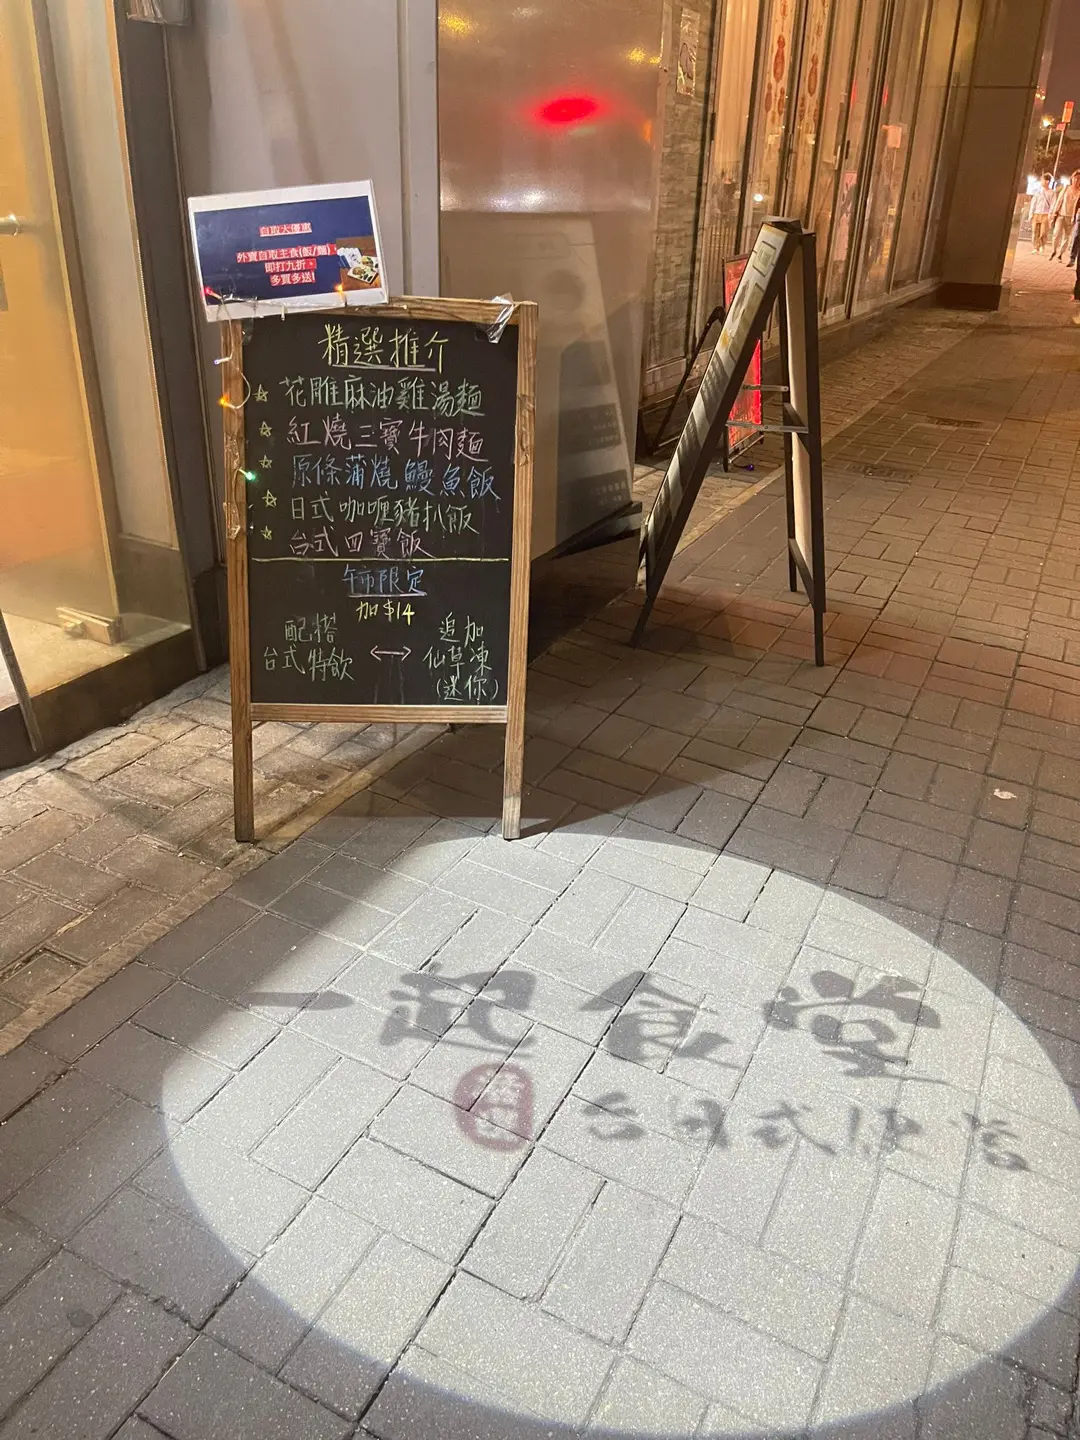 自取大優惠
外賣自取主食(飯/麵),
即打九折。
多買多送!
精選推介
☆ 花雕麻油雞湯麵
☆ 紅燒三寶牛肉麵
☆ 原條蒲燒鰻魚飯
☆ 日式咖喱豬扒飯
☆ 台式四寶飯
午市限定
加$14
配搭
台式特飲
↔
追加
仙草凍
(迷你)
一起食堂